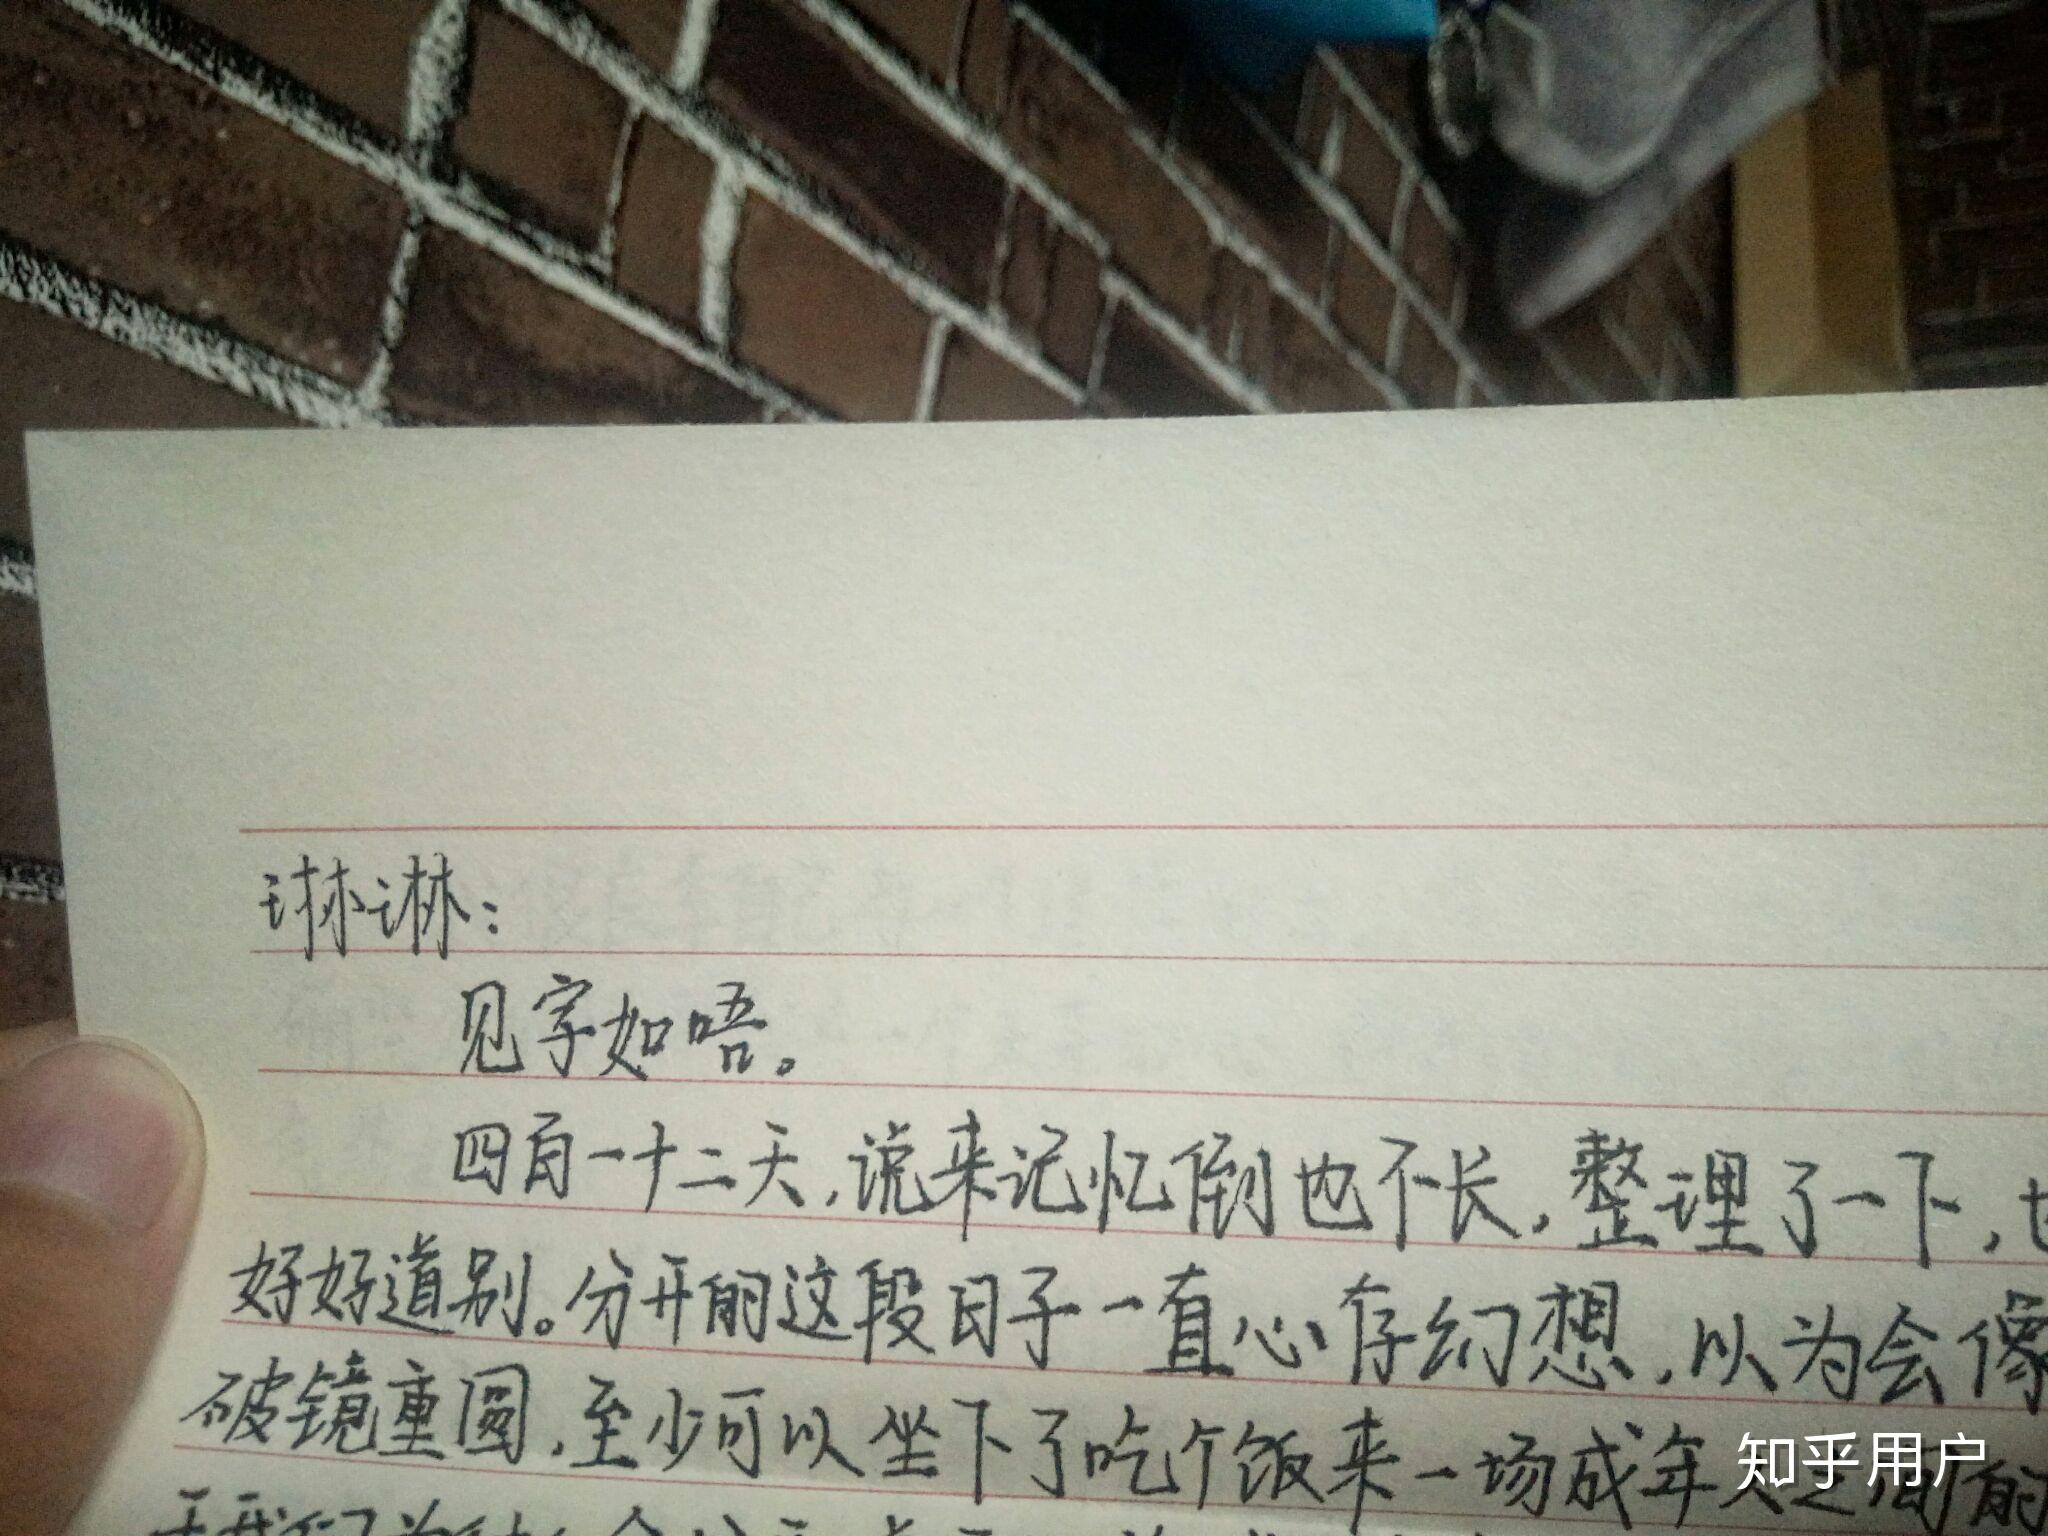 琳琳：
见字如唔。
四百一十二天，说来记忆倒也不长，整理了一下，也
好好道别。分开的这段日子一直心存幻想，以为会像
破镜重圆，至少可以坐下了吃个饭来一场成年人之间的
知乎用户